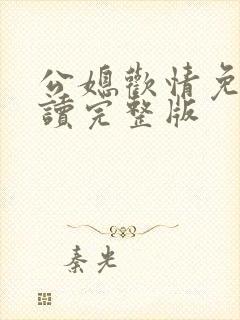 公媳歡情免
讀完整版
秦光